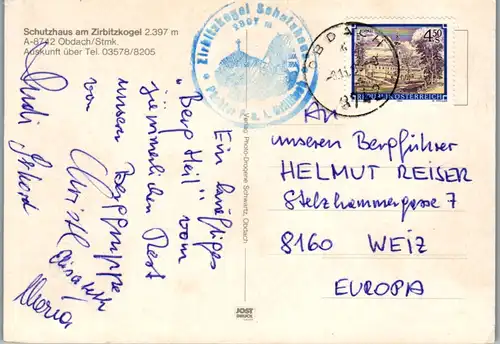 Schutzhaus am Zirbitzkogel 2.397 m
A-8742 Obdach/Stmk.
Auskunft über Tel. 03578/8205
Zirbitzkogel Schutzhaus
2397 m
OBDACH
4.50
S
REPUBLIK ÖSTERREICH
Ein kräftiges
"Berg Heil" vom
ziemlichen Rest
unserer Berggruppe
von Christl
Elisabeth
Rudi
Maria
Verlag: Photo-Drogerie Schwartz, Obdach
JOST
DRUCK
An
unseren Bergführer
HELMUT REISER
Stelzhammergasse 7
8160 WEIZ
EUROPA